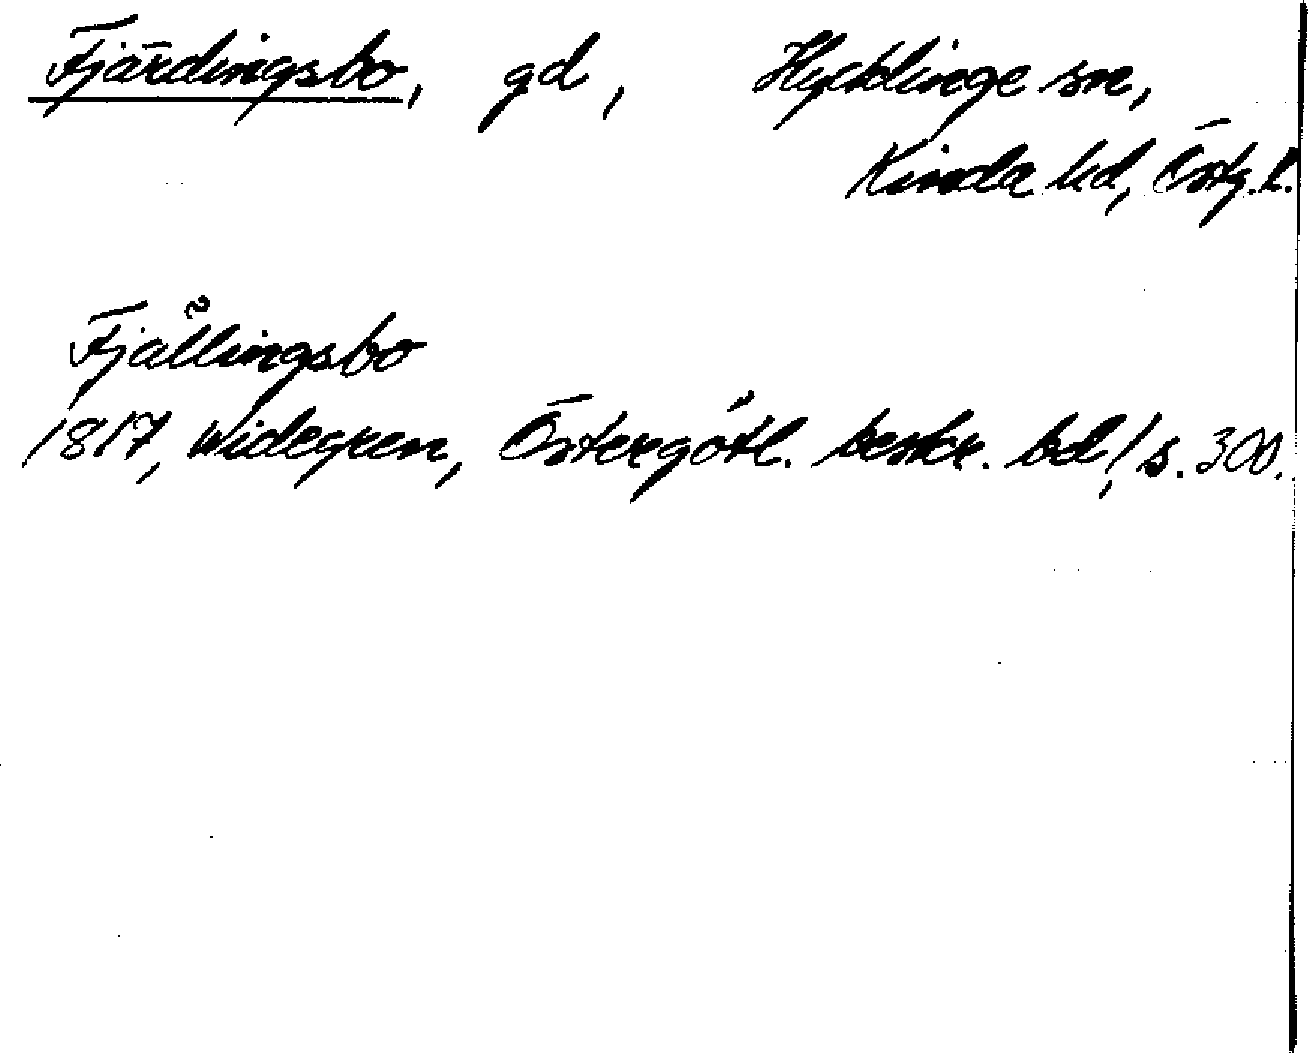 Fjärdingsbo, gd, Hycklinge sn,
Kinda hd, Östg. l.
Fjållingsbo
1817, Widegren, Östergötl. beskr. bd 1, s. 300.